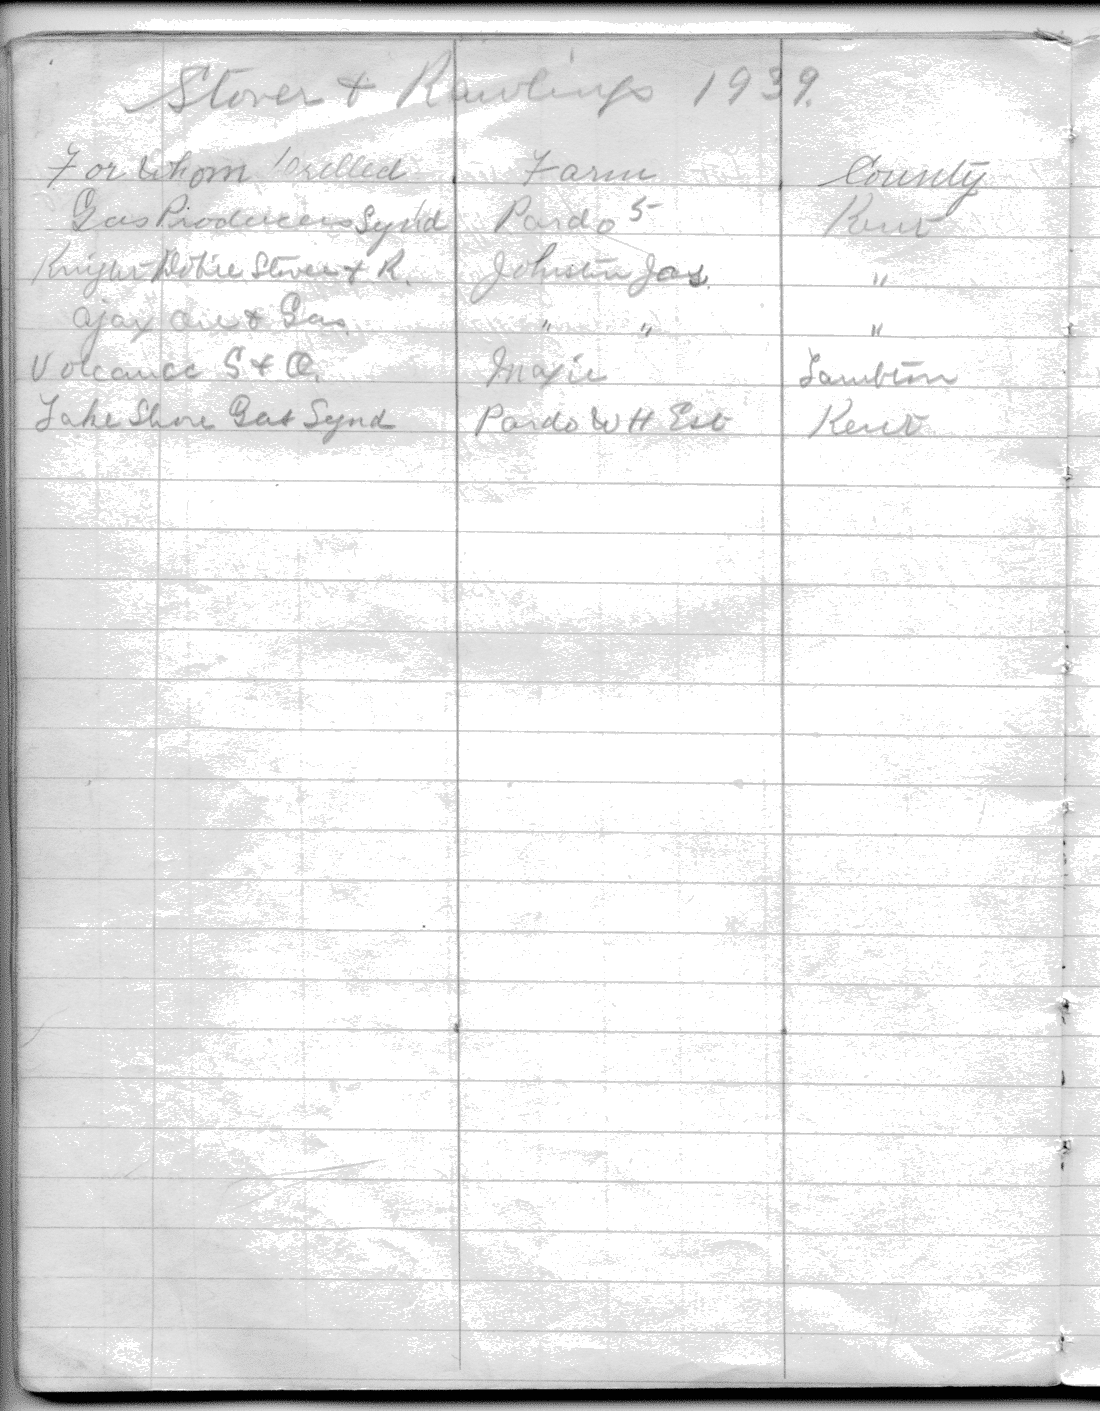 Stover & Rawlings 1939.
For Whom Drilled Farm County
Gas Producers Synd Pardo 5 Kent
Knight Dobie Stover & R. Johnston Jas. "
Ajax Oil & Gas " " "
Volcanic G & O. Maxie Lambton
Lake Shore Gas Synd Pardo W H Est Kent